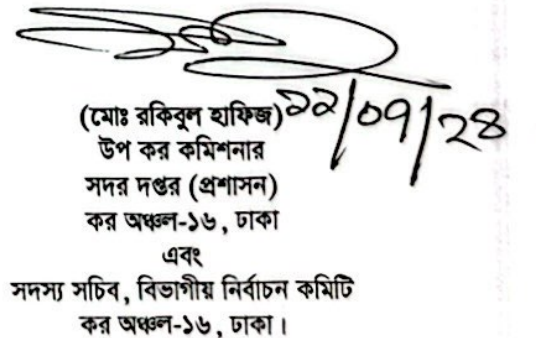 (মোঃ রকিবুল হাফিজ) ২২/০৭/২৪
উপ কর কমিশনার
সদর দপ্তর (প্রশাসন)
কর অঞ্চল-১৬, ঢাকা
এবং
সদস্য সচিব, বিভাগীয় নির্বাচন কমিটি
কর অঞ্চল-১৬, ঢাকা।